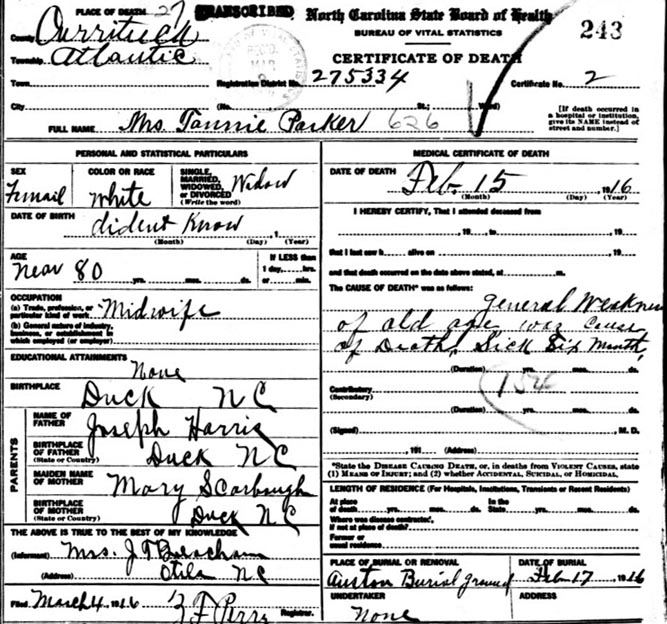 PLACE OF DEATH 27
TRANSCRIBED
North Carolina State Board of Health
BUREAU OF VITAL STATISTICS
243
County Currituck
CERTIFICATE OF DEATH
Township Atlantic
Town
Registration District No. 275334
Certificate No. 2
City
(No. St.; Ward)
[If death occurred in
a hospital or institution,
give its NAME instead of
street and number.]
FULL NAME Mrs. Tannie Parker 626
PERSONAL AND STATISTICAL PARTICULARS
SEX
Femail
COLOR OR RACE
White
SINGLE,
MARRIED,
WIDOWED,
OR DIVORCED
(Write the word)
Widow
DATE OF BIRTH
dident Know
, 1
(Month) (Day) (Year)
AGE
near 80
yrs. mos. ds.
IF LESS than
1 day, hrs.
or min.
OCCUPATION
(a) Trade, profession, or
particular kind of work
Midwife
(b) General nature of industry,
business, or establishment in
which employed (or employer)
EDUCATIONAL ATTAINMENTS
None
BIRTHPLACE
Duck NC
PARENTS
NAME OF
FATHER
Joseph Harris
BIRTHPLACE
OF FATHER
(State or Country)
Duck NC
MAIDEN NAME
OF MOTHER
Mary Scarbough
BIRTHPLACE
OF MOTHER
(State or Country)
Duck NC
THE ABOVE IS TRUE TO THE BEST OF MY KNOWLEDGE
(Informant) Mrs. J T
(Address) Otila NC
Filed March 4 1916 Z F Perry Registrar.
MEDICAL CERTIFICATE OF DEATH
DATE OF DEATH
Feb. 15 1916
(Month) (Day) (Year)
I HEREBY CERTIFY, That I attended deceased from
, 19 , to , 19
that I last saw h alive on , 19
and that death occurred on the date above stated, at m.
The CAUSE OF DEATH* was as follows:
general Weakness
of old age, was cause
of Death, Sick Six Month,
(Duration) yrs. mos. ds.
154
Contributory
(Secondary)
(Duration) yrs. mos. ds.
(Signed) M. D.
, 191 (Address)
*State the DISEASE CAUSING DEATH, or, in deaths from VIOLENT CAUSES, state
(1) MEANS OF INJURY; and (2) whether ACCIDENTAL, SUICIDAL, or HOMICIDAL.
LENGTH OF RESIDENCE (For Hospitals, Institutions, Transients or Recent Residents)
At place
of death yrs. mos. ds.
In the
State yrs. mos. ds.
Where was disease contracted,
if not at place of death?
Former or
usual residence
PLACE OF BURIAL OR REMOVAL
Auston Burial ground
DATE OF BURIAL
Feb 17 1916
UNDERTAKER
None
ADDRESS